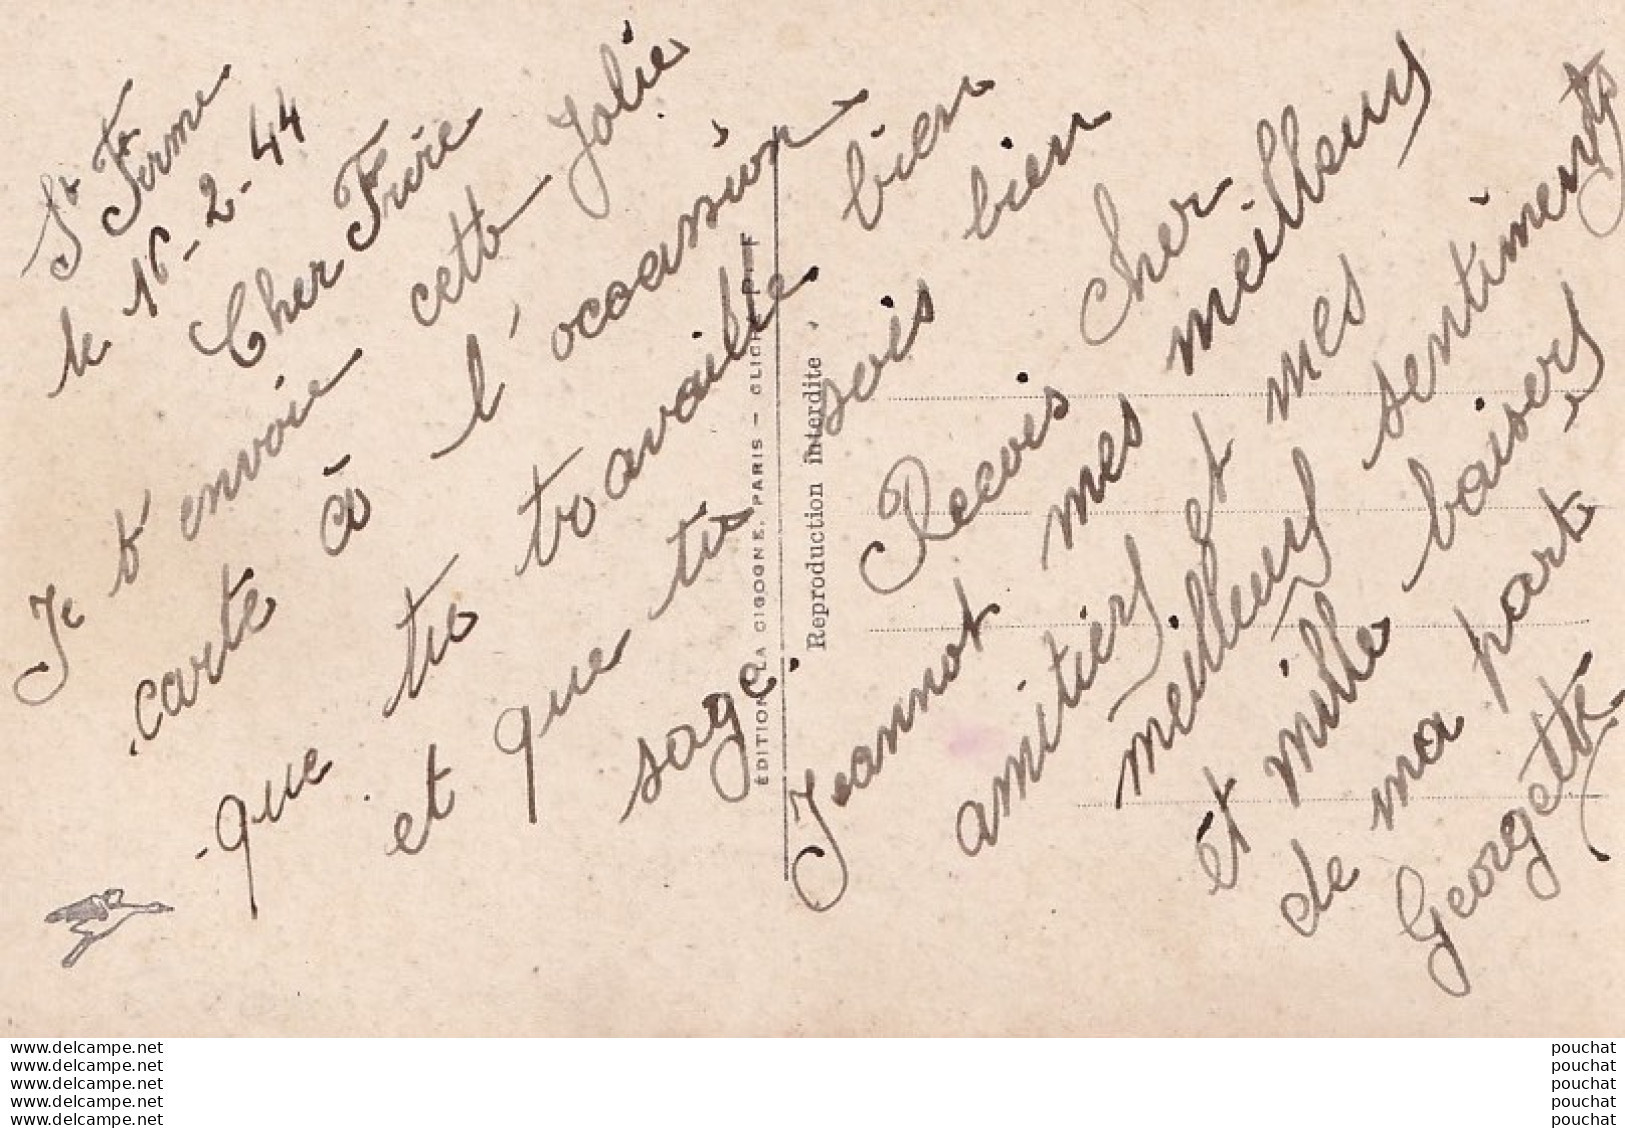 St Ferme
le 16-2-44
Cher Frère
Je t envoie cette Jolie
carte à l'occassion
que tu travaille bien
et que tu sois bien
sage.
Recois cher
Jeannot mes meilleurs
amitiers et mes
meilleurs sentiments
et mille baisers
de ma part
Georgette
ÉDITION LA CIGOGNE. PARIS — CLICHÉ
Reproduction interdite
www.delcampe.net
www.delcampe.net
www.delcampe.net
www.delcampe.net
www.delcampe.net
pouchat
pouchat
pouchat
pouchat
pouchat